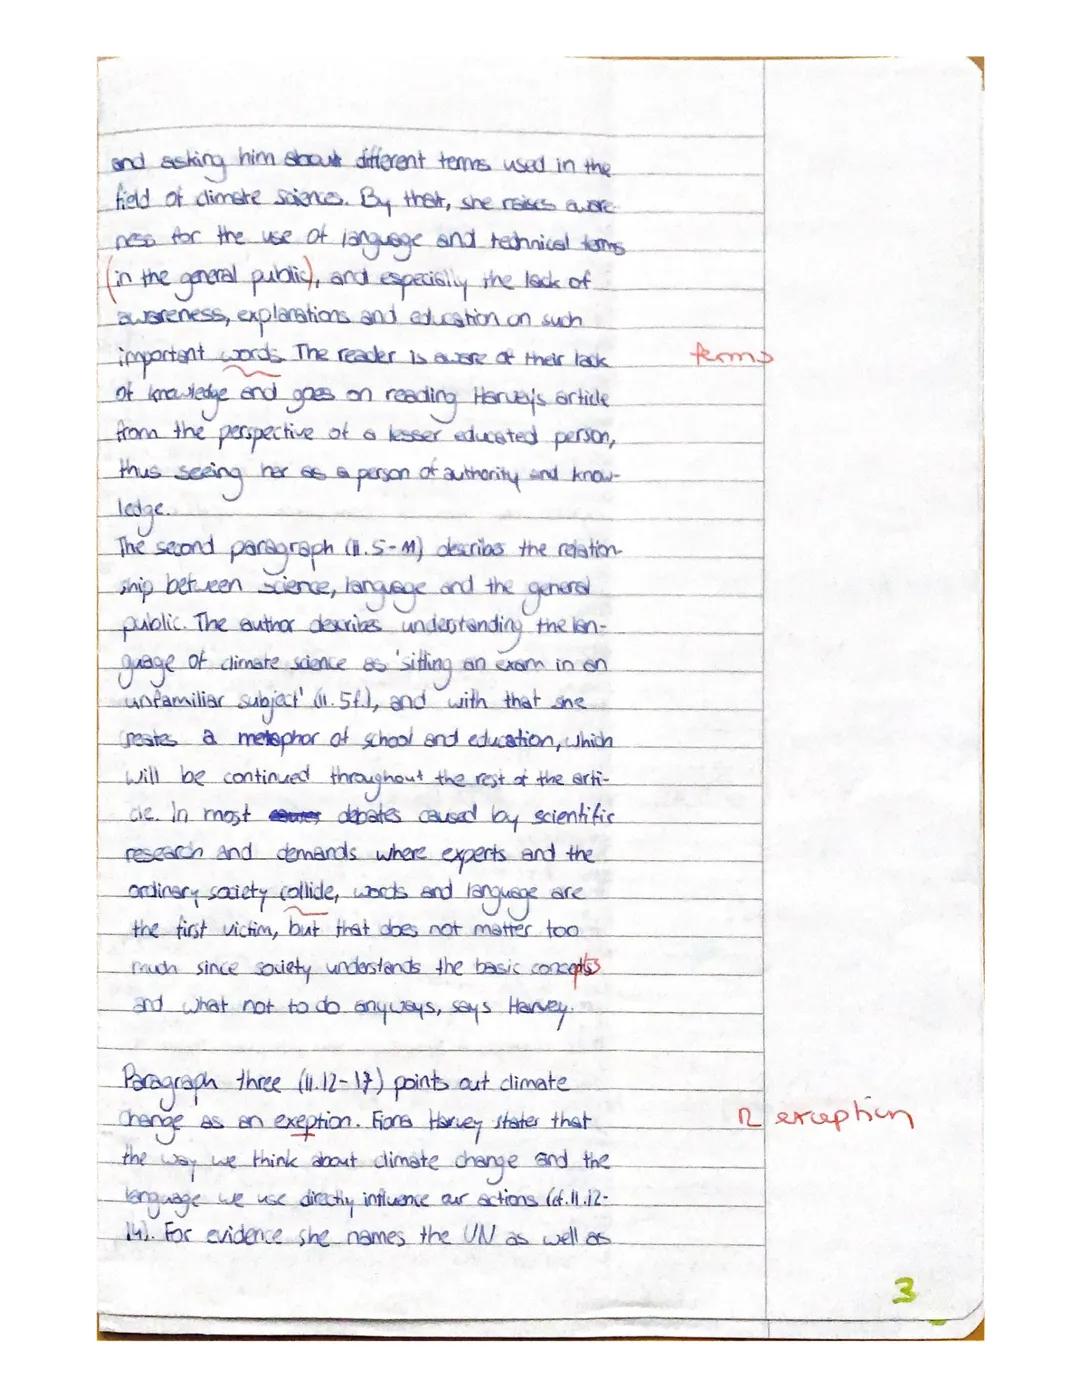 and asking him about different terms used in the
field of climate science. By that, she raises aware-
ness for the use of language and technical terms
(in the general public), and especially the lack of
awareness, explanations and education on such
important words. The reader is aware of their lack
terms
of knowledge and goes on reading Harvey's article
from the perspective of a lesser educated person,
thus seeing her as a person of authority and know-
ledge.
The second paragraph (ll. 5-11) describes the relation-
ship between science, language and the general
public. The author describes understanding the lan-
guage of climate science as 'sitting an exam in an
unfamiliar subject' (ll. 5f.), and with that she
creates a metaphor of school and education, which
will be continued throughout the rest of the arti-
cle. In most debates caused by scientific
research and demands where experts and the
ordinary society collide, words and language are
the first victim, but that does not matter too
much since society understands the basic concepts
and what not to do anyways, says Harvey.
Paragraph three (ll. 12-17) points out climate
change as an exeption. Fiona Harvey states that
R exception
the way we think about climate change and the
language we use directly influence our actions (cf. ll. 12-
14). For evidence she names the UN as well as
3